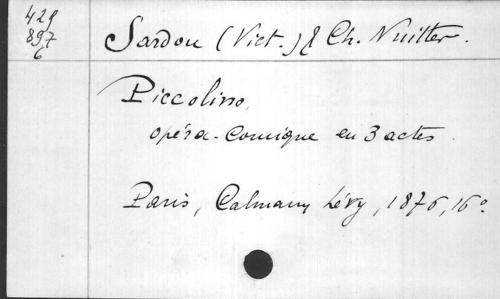 429
897
6
Sardou (Vict.) & Ch. Nuitter.
Piccolino,
opéra-comique en 3 actes.
Paris, Calmann Lévy, 1876, 16°